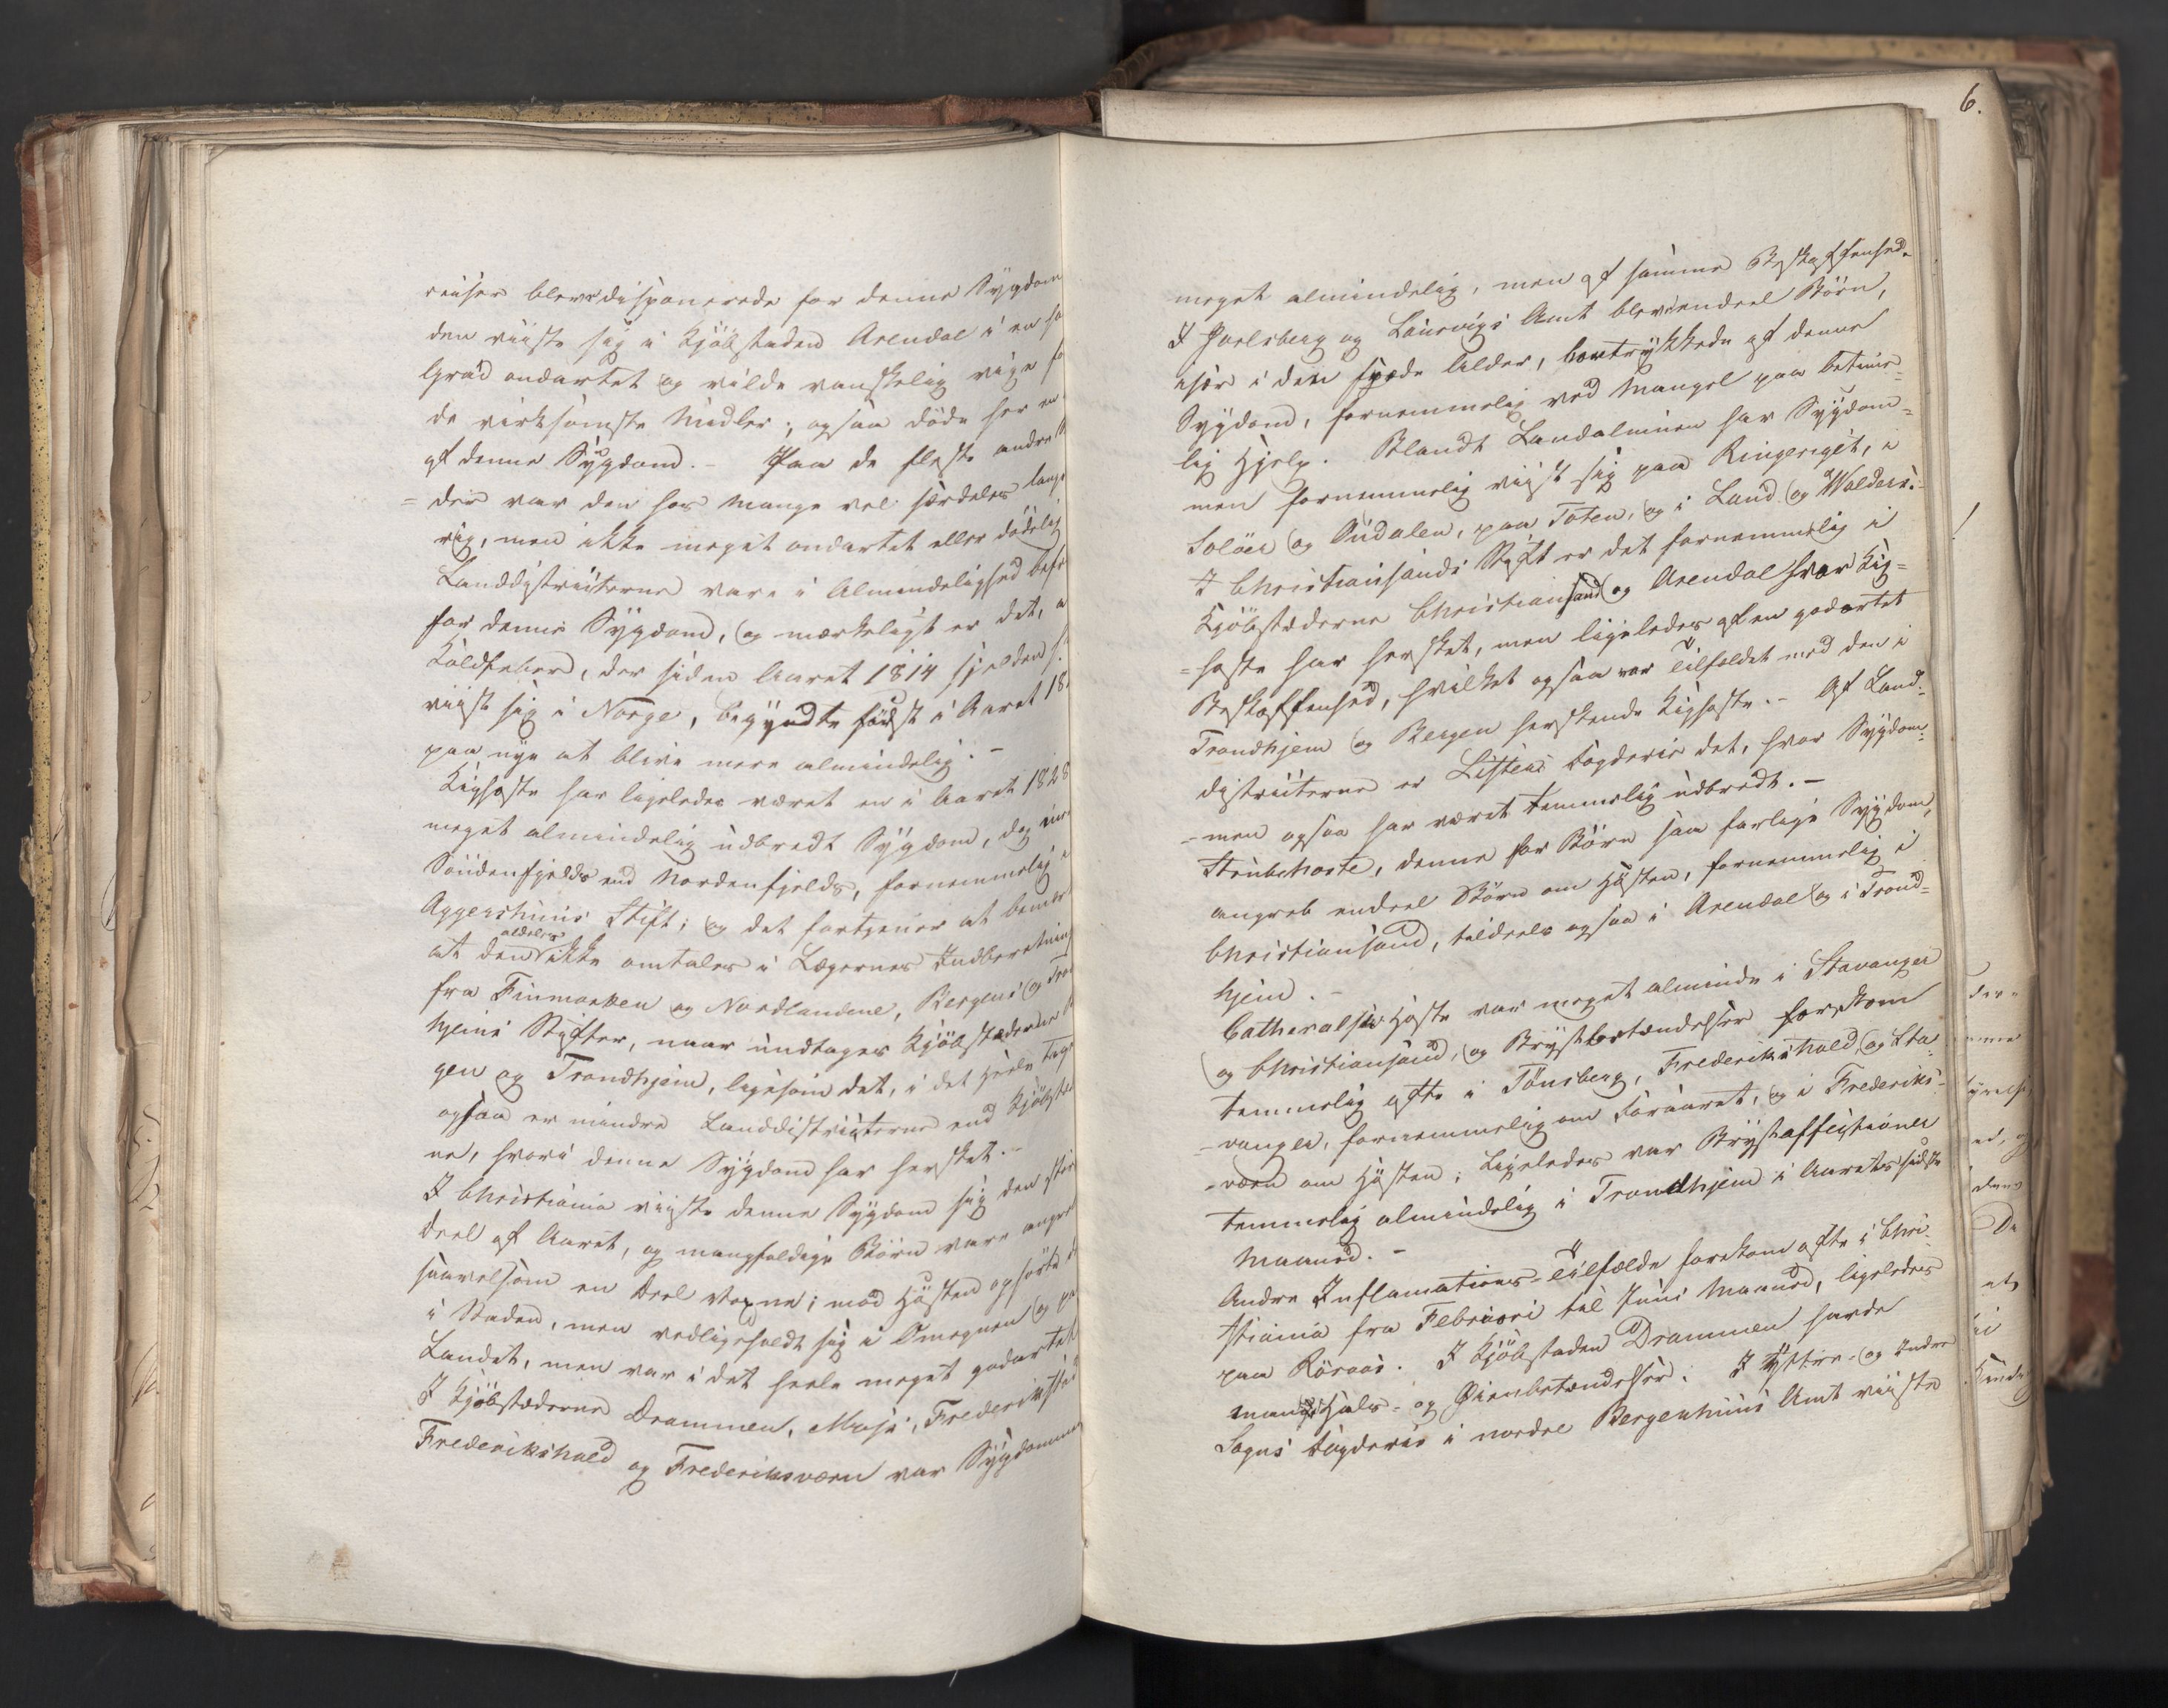 riuser bleve disponerede for denne Sygdom
den viiste sig i Kjöbstaden Arendal i en saa
Grad ondartet og vilde vanskelig vige for
de virksomste Midler; ogsaa döde her en
af denne Sygdom. – Paa de fleste andre
der var den hos mange vel særdeles lang
rig, men ikke meget ondartet eller dödelig
Landdistricterne vare i Almindelighed befr
for denne Sygdom, og mærkeligt er det, a
Koldfeber, der siden Aaret 1814 sjelden ha
viist sig i Norge, begyndte först i Aaret 18
paa nye at blive mere almindelig. –
Kighoste har ligeledes været en i Aaret 1828
meget almindelig udbredt Sygdom, dog mere
Söndenfjelds end Nordenfjelds, fornemmelig i
Aggershuus Stift; og det fortjener at bemær
at den aldeles ikke omtales i Lægernes Indberetning
fra Finmarken og Nordlandene, Bergens og Tron
hjems Stifter, naar undtages Kjöbstæderne B
gen og Trondhjem, ligesom det, i det Hele tag
ogsaa er mindre Landdistricterne end Kjöbstæ
ne, hvori denne Sygdom har hersket. –
I Christiania viiste denne Sygdom sig den stör
Deel af Aaret, og mangfoldige Börn vare angre
saavelsom en Deel Voxne; mod Hösten ophörte d
i Staden, men vedligeholdt sig i Omegnen og pa
Landet, men var i det heele meget godartet
I Kjöbstæderne Drammen, Moss, Frederikstad
Frederikshald og Frederiksværn var Sygdommen
6.
meget almindelig, men af samme Beskaffenhed.
I Jarlsberg og Laurvigs Amt bleve endeel Börn,
især i den spæde Alder, bortrykkede af denne
Sygdom, fornemmelig ved Mangel paa betime=
lig Hjelp. Blandt Landalmuen har Sygdom=
men fornemmelig viist sig paa Ringeriget, i
Solöer og Oudalen, paa Toten, og i Land og Walders.
I Christiansands Stift er det fornemmelig i
Kjöbstæderne Christiansand og Arendal hvor Kig=
=hoste har hersket, men ligeledes af en godartet
Beskaffenhed, hvilket ogsaa var Tilfældet med den i
Trondhjem og Bergen herskende Kighoste. – Af Land=
districterne er Listers Fogderie det, hvor Sygdom=
=men ogsaa har været temmelig udbredt. –
Strubehoste, denne for Börn saa farlige Sygdom,
angreb endeel Börn om Hösten, fornemmelig i
Christiansand, tildeels ogsaa i Arendal og i Trond=
hjem. –
Catheralsk Hoste var meget almindl i Stavanger
og Christiansand, og Brystbetændelser forekom
temmelig ofte i Tönsberg, Frederikshald, og Sta=
=vanger, fornemmelig om Foraaret, og i Frederiks=
=værn om Hösten; Ligeledes var Brystaffectioner
temmelig almindelig i Trondhjem i Aarets sidste
Maaned. –
Andre Inflamations-Tilfælde forekom ofte i Chri=
stiania fra Februari til Juni Maaned, ligeledes
paa Röraas. I Kjöbstaden Drammen havde
mange Hals- og Öienbetændelser. I Yttre- og Indre
Sogns Fogderie i nordre Bergenhuus Amt viiste